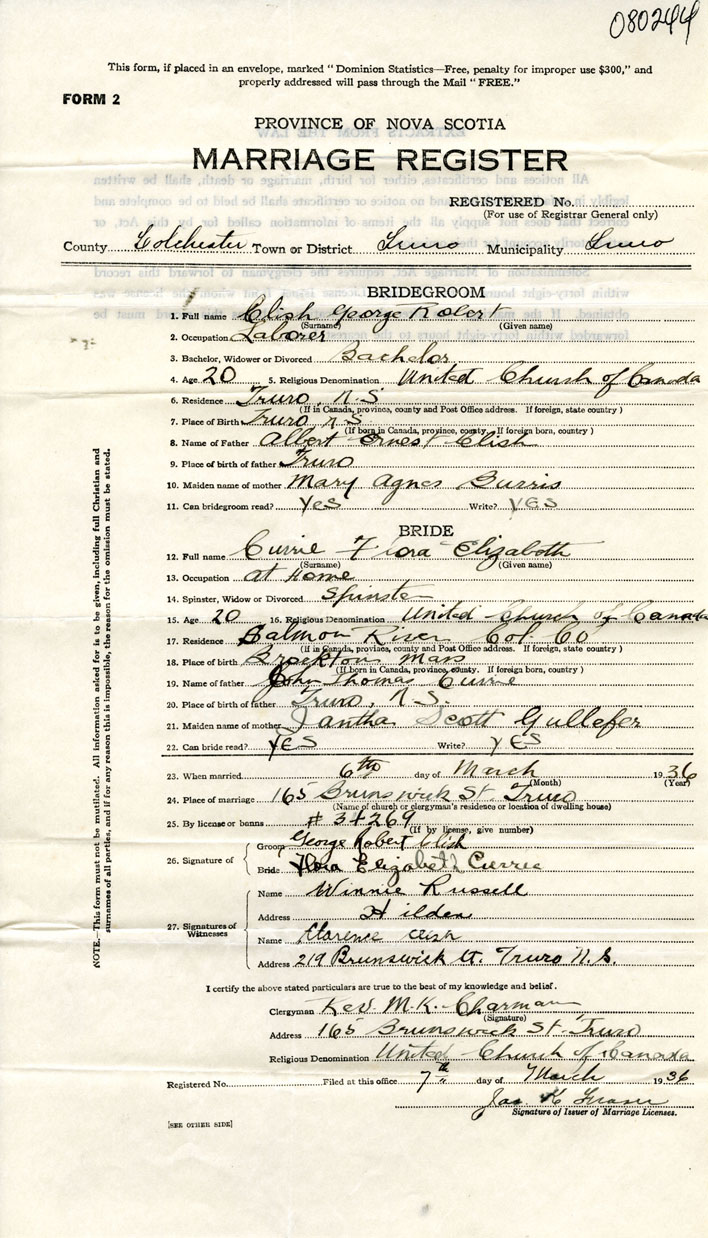 080244
This form, if placed in an envelope, marked "Dominion Statistics—Free, penalty for improper use $300," and
properly addressed will pass through the Mail "FREE."
FORM 2
PROVINCE OF NOVA SCOTIA
MARRIAGE REGISTER
REGISTERED No.
(For use of Registrar General only)
County Colchester Town or District Truro Municipality Truro
BRIDEGROOM
1. Full name Clish George Robert
(Surname) (Given name)
2. Occupation Laborer
3. Bachelor, Widower or Divorced Bachelor
4. Age 20 5. Religious Denomination United Church of Canada
6. Residence Truro, N.S
(If in Canada, province, county and Post Office address. If foreign, state country)
7. Place of Birth Truro N S
(If born in Canada, province, county. If foreign born, country)
8. Name of Father Albert Ernest Clish
9. Place of birth of father Truro
10. Maiden name of mother Mary Agnes Burris
11. Can bridegroom read? Yes Write? YES
BRIDE
12. Full name Currie Flora Elizabeth
(Surname) (Given name)
13. Occupation at Home
14. Spinster, Widow or Divorced Spinster
15. Age 20 16. Religious Denomination United Church of Canada
17. Residence Salmon River Col. Co
(If in Canada, province, county and Post Office address. If foreign, state country)
18. Place of birth Brockton Mass
(If born in Canada, province, county. If foreign born, country)
19. Name of father John Thomas Currie
20. Place of birth of father Truro, N.S.
21. Maiden name of mother Jantha Scott Gullefer
22. Can bride read? YES Write? YES
23. When married 6th day of March 1936
(Month) (Year)
24. Place of marriage 165 Brunswick St. Truro
(Name of church or clergyman's residence or location of dwelling house)
25. By license or banns # 34269
(If by license, give number)
26. Signature of
Groom George Robert Clish
Bride Flora Elizabeth Currie
27. Signatures of Witnesses
Name Winnie Russell
Address Hilden
Name Clarence Clish
Address 219 Brunswick St. Truro N.S.
I certify the above stated particulars are true to the best of my knowledge and belief.
Clergyman Rev. M.K. Charman
(Signature)
Address 165 Brunswick St. Truro
Religious Denomination United Church of Canada
Registered No. Filed at this office 7th day of March 1936
Jas K Fraser
Signature of Issuer of Marriage Licenses.
[SEE OTHER SIDE]
NOTE.—This form must not be mutilated. All information asked for is to be given, including full Christian and
surnames of all parties, and if for any reason this is impossible, the reason for the omission must be stated.